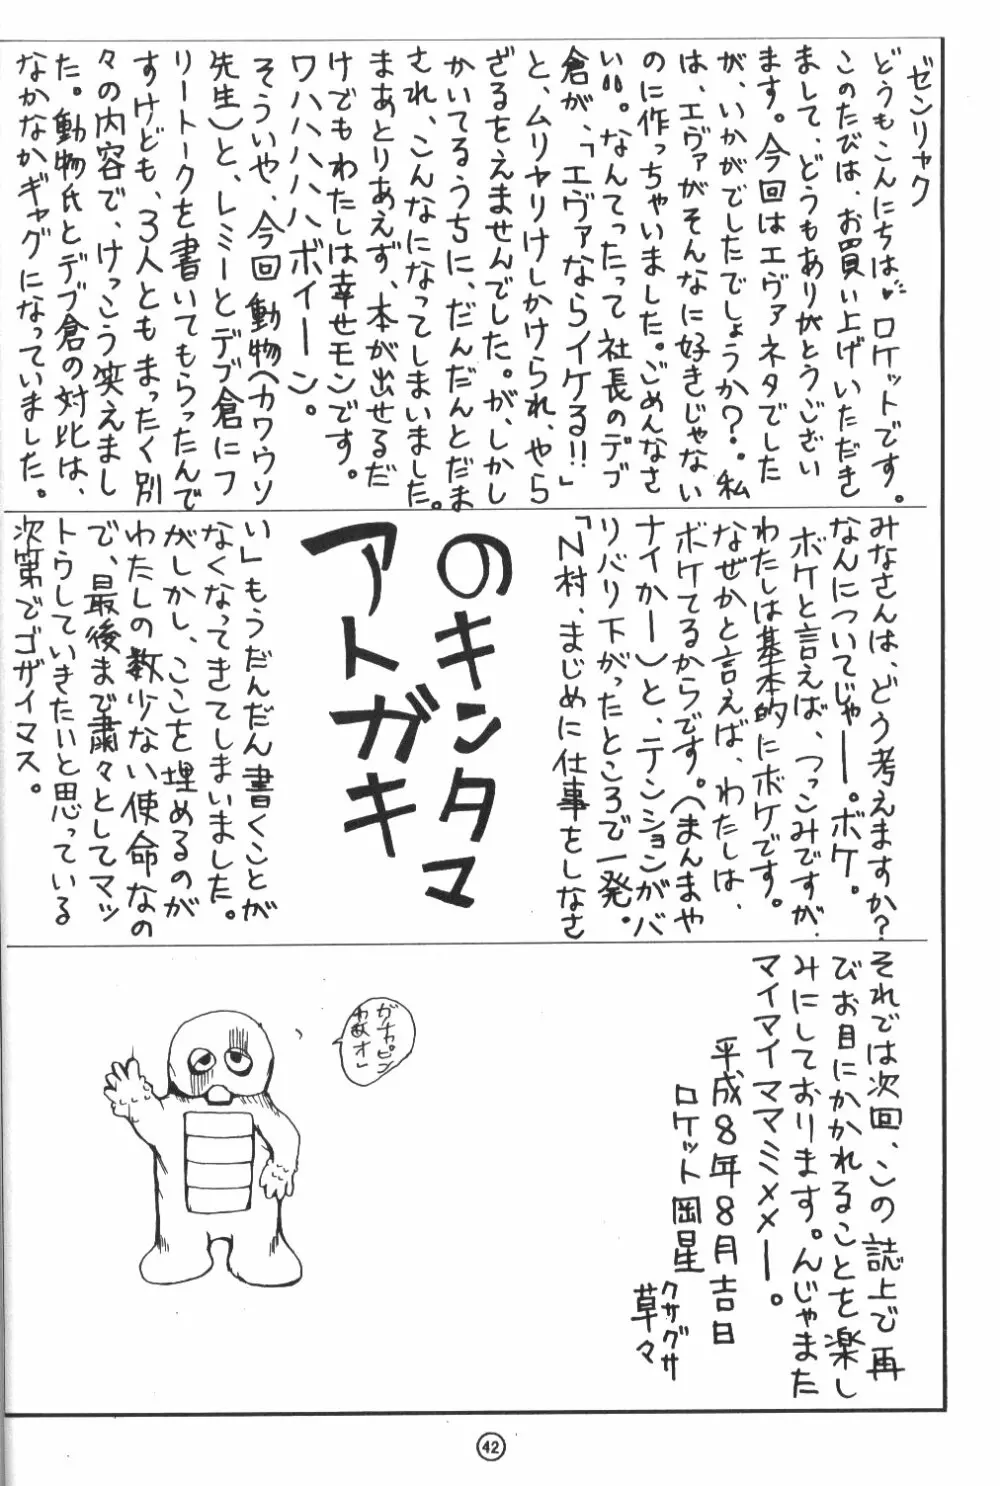 ゼンリャク
どうもこんにちは♥ロケットです。
このたびは、お買い上げいただき
まして、どうもありがとうござい
ます。今回はエヴァネタでした
が、いかがでしたでしょうか?私
は、エヴァがそんなに好きじゃない
のに作っちゃいました。ごめんなさ
い!!。なんてったって社長のデブ
倉が、「エヴァならイケる!!」
と、ムリヤリけしかけられ、やら
ざるをえませんでした。が、しかし
かいてるうちに、だんだんとだま
され、こんなになってしまいました。
まあとりあえず、本が出せるだ
けでもわたしは幸せモンです。
ワハハハハハボイーン)。
そういや、今回動物(カワウソ
先生)と、レミーとデブ倉にフ
リートークを書いてもらったんで
すけども、3人ともまったく別
々の内容で、けっこう笑えまし
た。動物氏とデブ倉の対比は、
なかなかギャグになっていました。
みなさんは、どう考えますか?
なんについてじゃー。ボケ。
ボケと言えば、つっこみですが、
わたしは基本的にボケです。
なぜかと言えば、わたしは、
ボケてるからです。(まんまや
ナイかー)と、テンションがバ
リバリ下がったところで一発。
「N村、まじめに仕事をしなさ
のキンタマ
アトガキ
い」もうだんだん書くことが
なくなってきてしまいました。
がしかし、ここを埋めるのが
わたしの数少ない使命なの
で、最後まで粛々としてマッ
トウしていきたいと思っている
次第でゴザイマス。
それでは次回、この誌上で再
びお目にかかれることを楽し
みにしております。んじゃまた
マイマイママミミメメー。
平成8年8月吉日
ロケット岡星
クサグサ
草々
ガチャピン
42